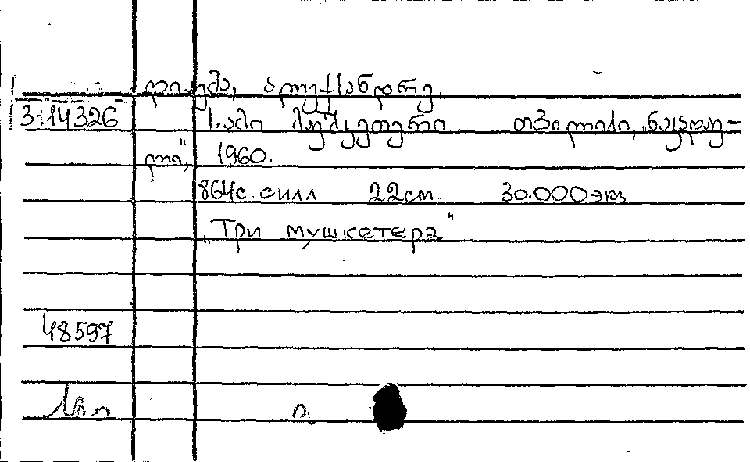 დიუმა, ალექსანდრე.
3-14326 სამი მუშკეტერი თბილისი, „ნაკადუ-
ლი", 1960.
864с. силл 22см 30.000экз
„Три мушкетера"
48597